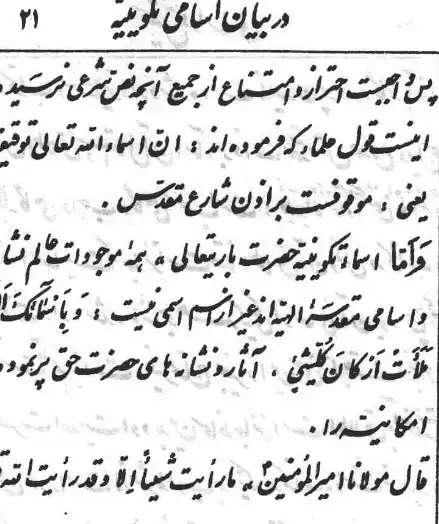 در بیان اسامی تکوینیّه ۲۱
پس واجبست احتراز و امتناع از جمیع آنچه نصّ شرعی نرسیده
اینست قول علماء که فرموده‌اند : انّ اسماء الله تعالی توقیف
یعنی : موقوفست بر اذن شارع مقدّس .
وَ اَمّا اسماء تکوینیّه حضرت باریتعالی ، همهٔ موجودات عالم نشا
و اسامی مقدّسهٔ الهیّه‌اند غیر از اسم اسمی نیست : وَ بِاَسْمائِکَ
مَلَأَتْ اَرْکانَ کُلِّشَیْئٍ ، آثار و نشانه‌های حضرت حق پر نموده
امکانیّه را .
قال مولانا امیرالمؤمنین ، ما رأیت شیئاً اِلّا و قد رأیت الله